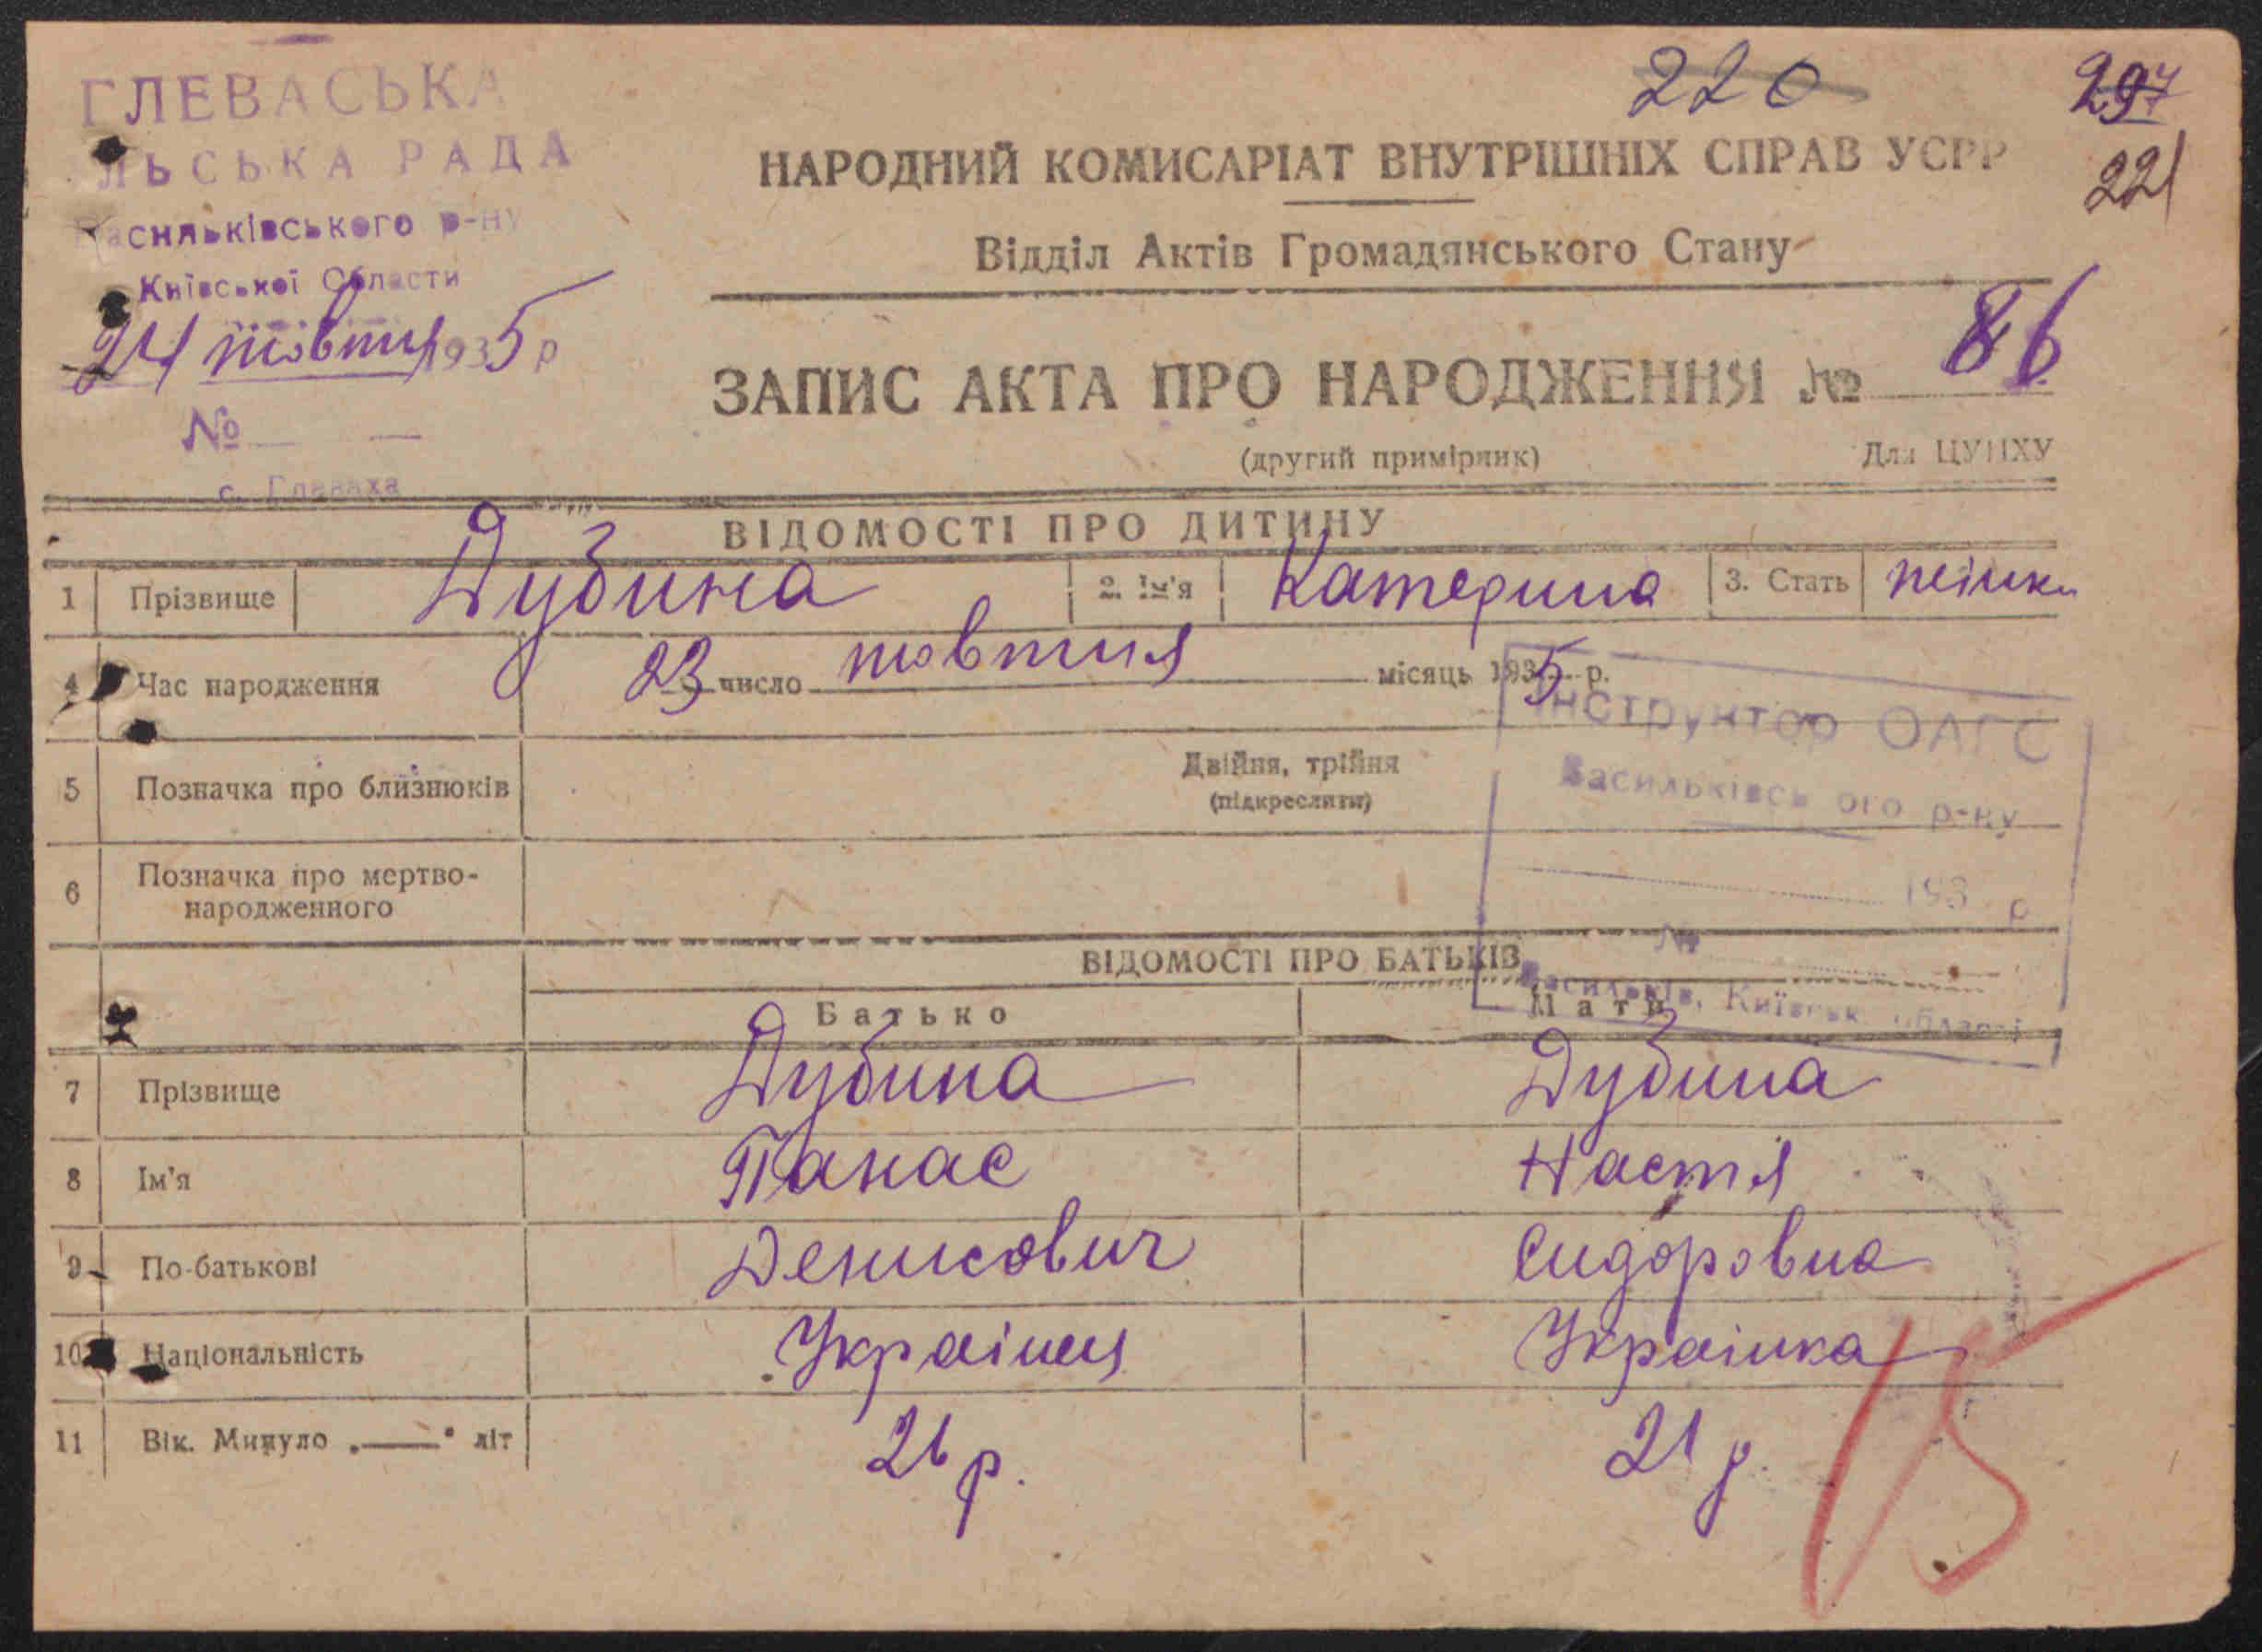 ГЛЕВАСЬКА
ЛЬСЬКА РАДА
Васильківського р-ну
Київської Области
24 жовтня 1935 р
№
с. Глеваха
220
297
221
НАРОДНИЙ КОМИСАРІАТ ВНУТРІШНІХ СПРАВ УСРР
Відділ Актів Громадянського Стану
ЗАПИС АКТА ПРО НАРОДЖЕННЯ № 86
(другий примірник) Для ЦУНХУ
ВІДОМОСТІ ПРО ДИТИНУ
1 Прізвище Дубина 2. Ім'я Катерина 3. Стать жіноч
4 Час народження 23 число жовтня місяць 1935 р.
Інструктор ОАГС
Васильківсь ого р-ну
193 р
№
Васильків, Київськ. області
5 Позначка про близнюків Двійня, трійня
(підкреслити)
6 Позначка про мертво-
народженного
ВІДОМОСТІ ПРО БАТЬКІВ
Батько Мати
7 Прізвище Дубина Дубина
8 Ім'я Панас Настя
9 По-батькові Денисович Сидоровна
10 Національність Украінец Украінка
11 Вік. Минуло „—“ літ 26 р. 21 р.
15